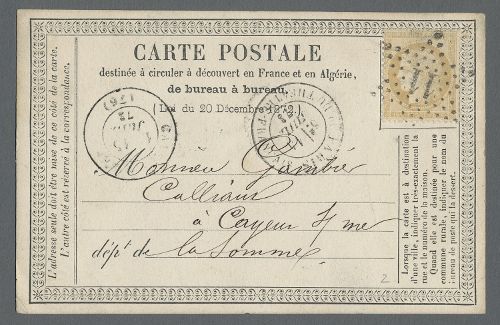 CARTE POSTALE
destinée à circuler à découvert en France et en Algérie,
de bureau à bureau.
(Loi du 20 Décembre 1872.)
Monsieur Gambier
à Cayeux s/ mer
dépt de la Somme
L'adresse seule doit être mise de ce côté de la carte.
L'autre côté est réservé à la correspondance.
Lorsque la carte est à destination
d'une ville, indiquer très-exactement la
rue et le numéro de la maison.
Quand elle est destinée pour une
commune rurale, indiquer le nom du
bureau de poste qui la dessert.
11
(76)
73
2